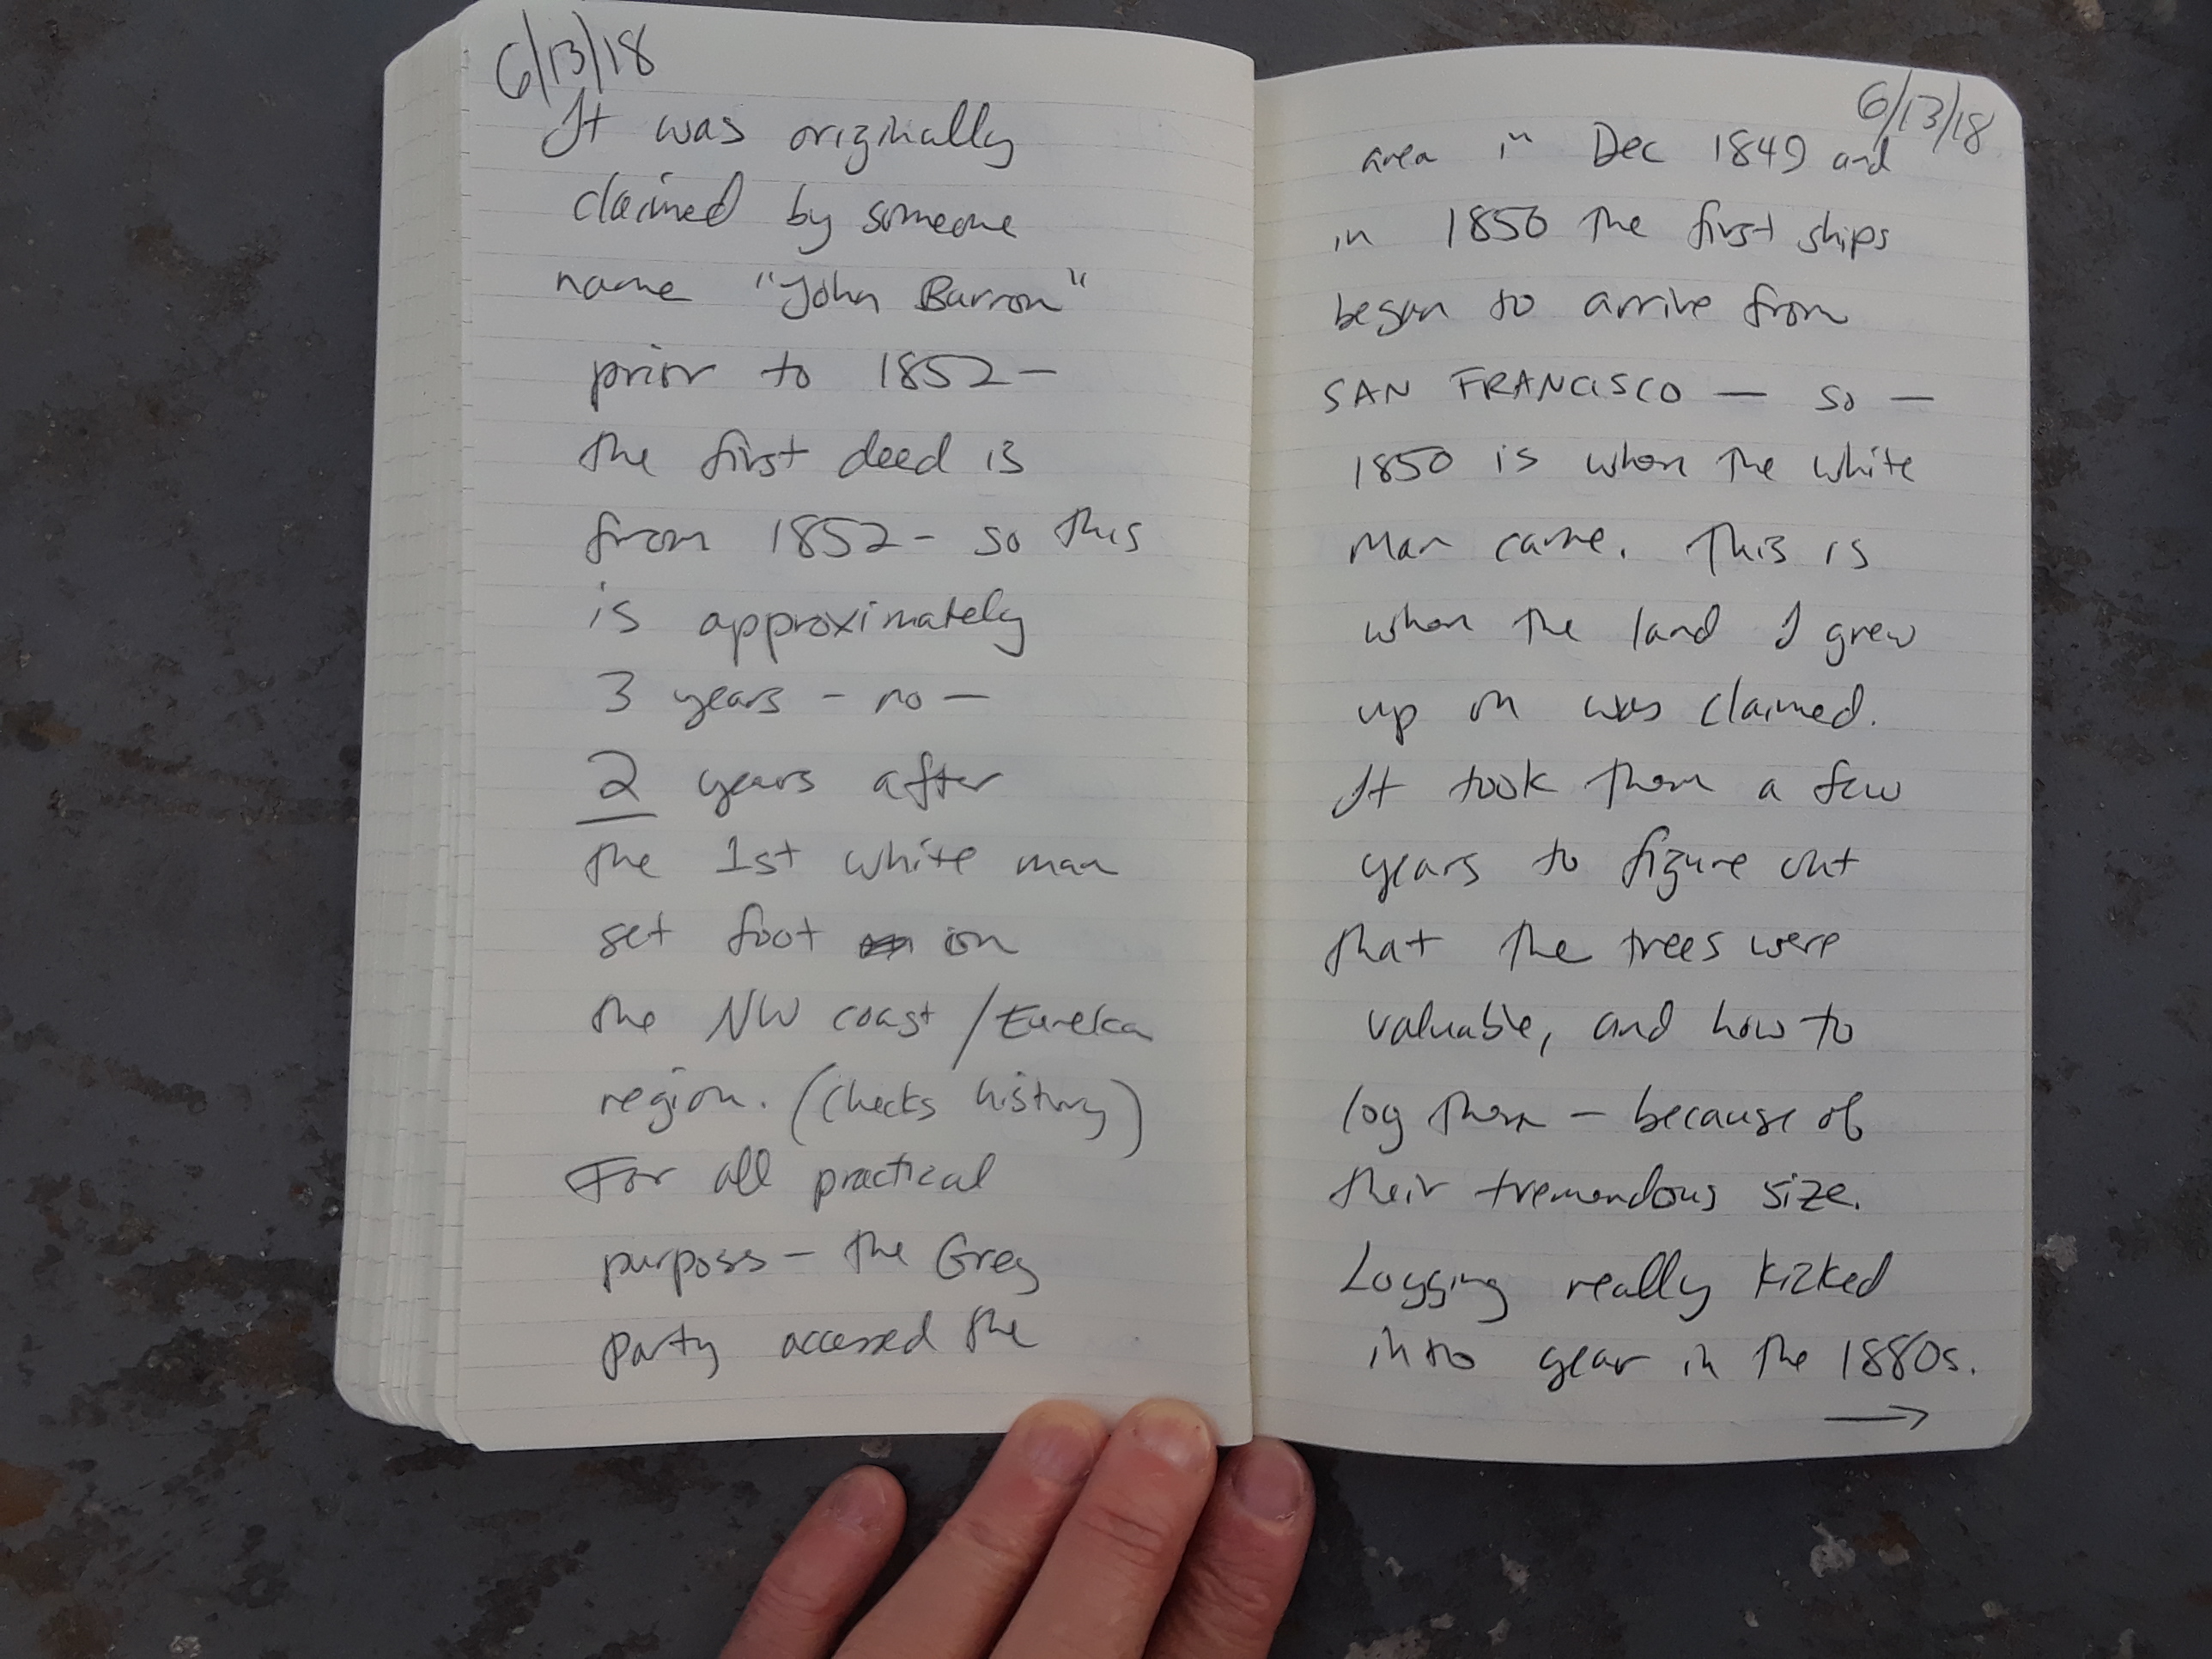 6/13/18
It was originally
claimed by someone
name "John Barron"
prior to 1852 –
the first deed is
from 1852 – so this
is approximately
3 years – no –
2 years after
the 1st white man
set foot on
the NW coast / Eureka
region. (checks history)
For all practical
purposs – the Greg
party accessed the
6/13/18
area in Dec 1849 and
in 1850 the first ships
began to arrive from
SAN FRANCISCO — so —
1850 is when the white
man came. This is
when the land I grew
up on was claimed.
It took them a few
years to figure out
that the trees were
valuable, and how to
log them – because of
their tremendous size.
Logging really kicked
into gear in the 1880s.
→